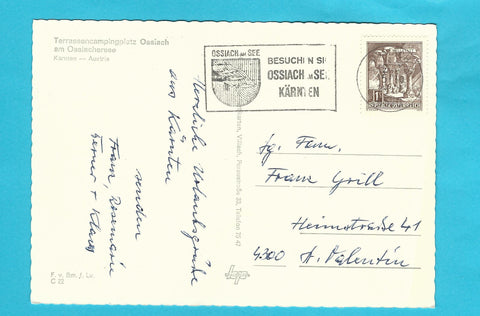 Terrassencampingplatz Ossiach
am Ossiachersee
Kärnten — Austria
OSSIACH AM SEE
BESUCHEN SIE
OSSIACH AM SEE
KÄRNTEN
Herzliche Urlaubsgrüße
aus Kärnten
senden
Franz, Rosemarie
Werner + Klaus
Villach, Telefon
F. v. Bm. f. Lv.
C 22
Fg. Fam.
Franz Grill
Heimstraße 41
4300 St. Valentin